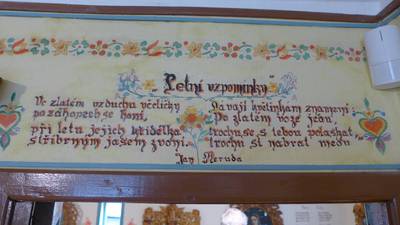 „Letní vzpomínky"
Ve zlatém vzduchu včeličky
po záhonech se honí,
při letu jejich křidélka
stříbrným jasem zvoní.
Dávají květinkám znamení:
"Po zlatém voze jedu,
trochu se s tebou polaskat
trochu si nabrat medu
Jan Neruda